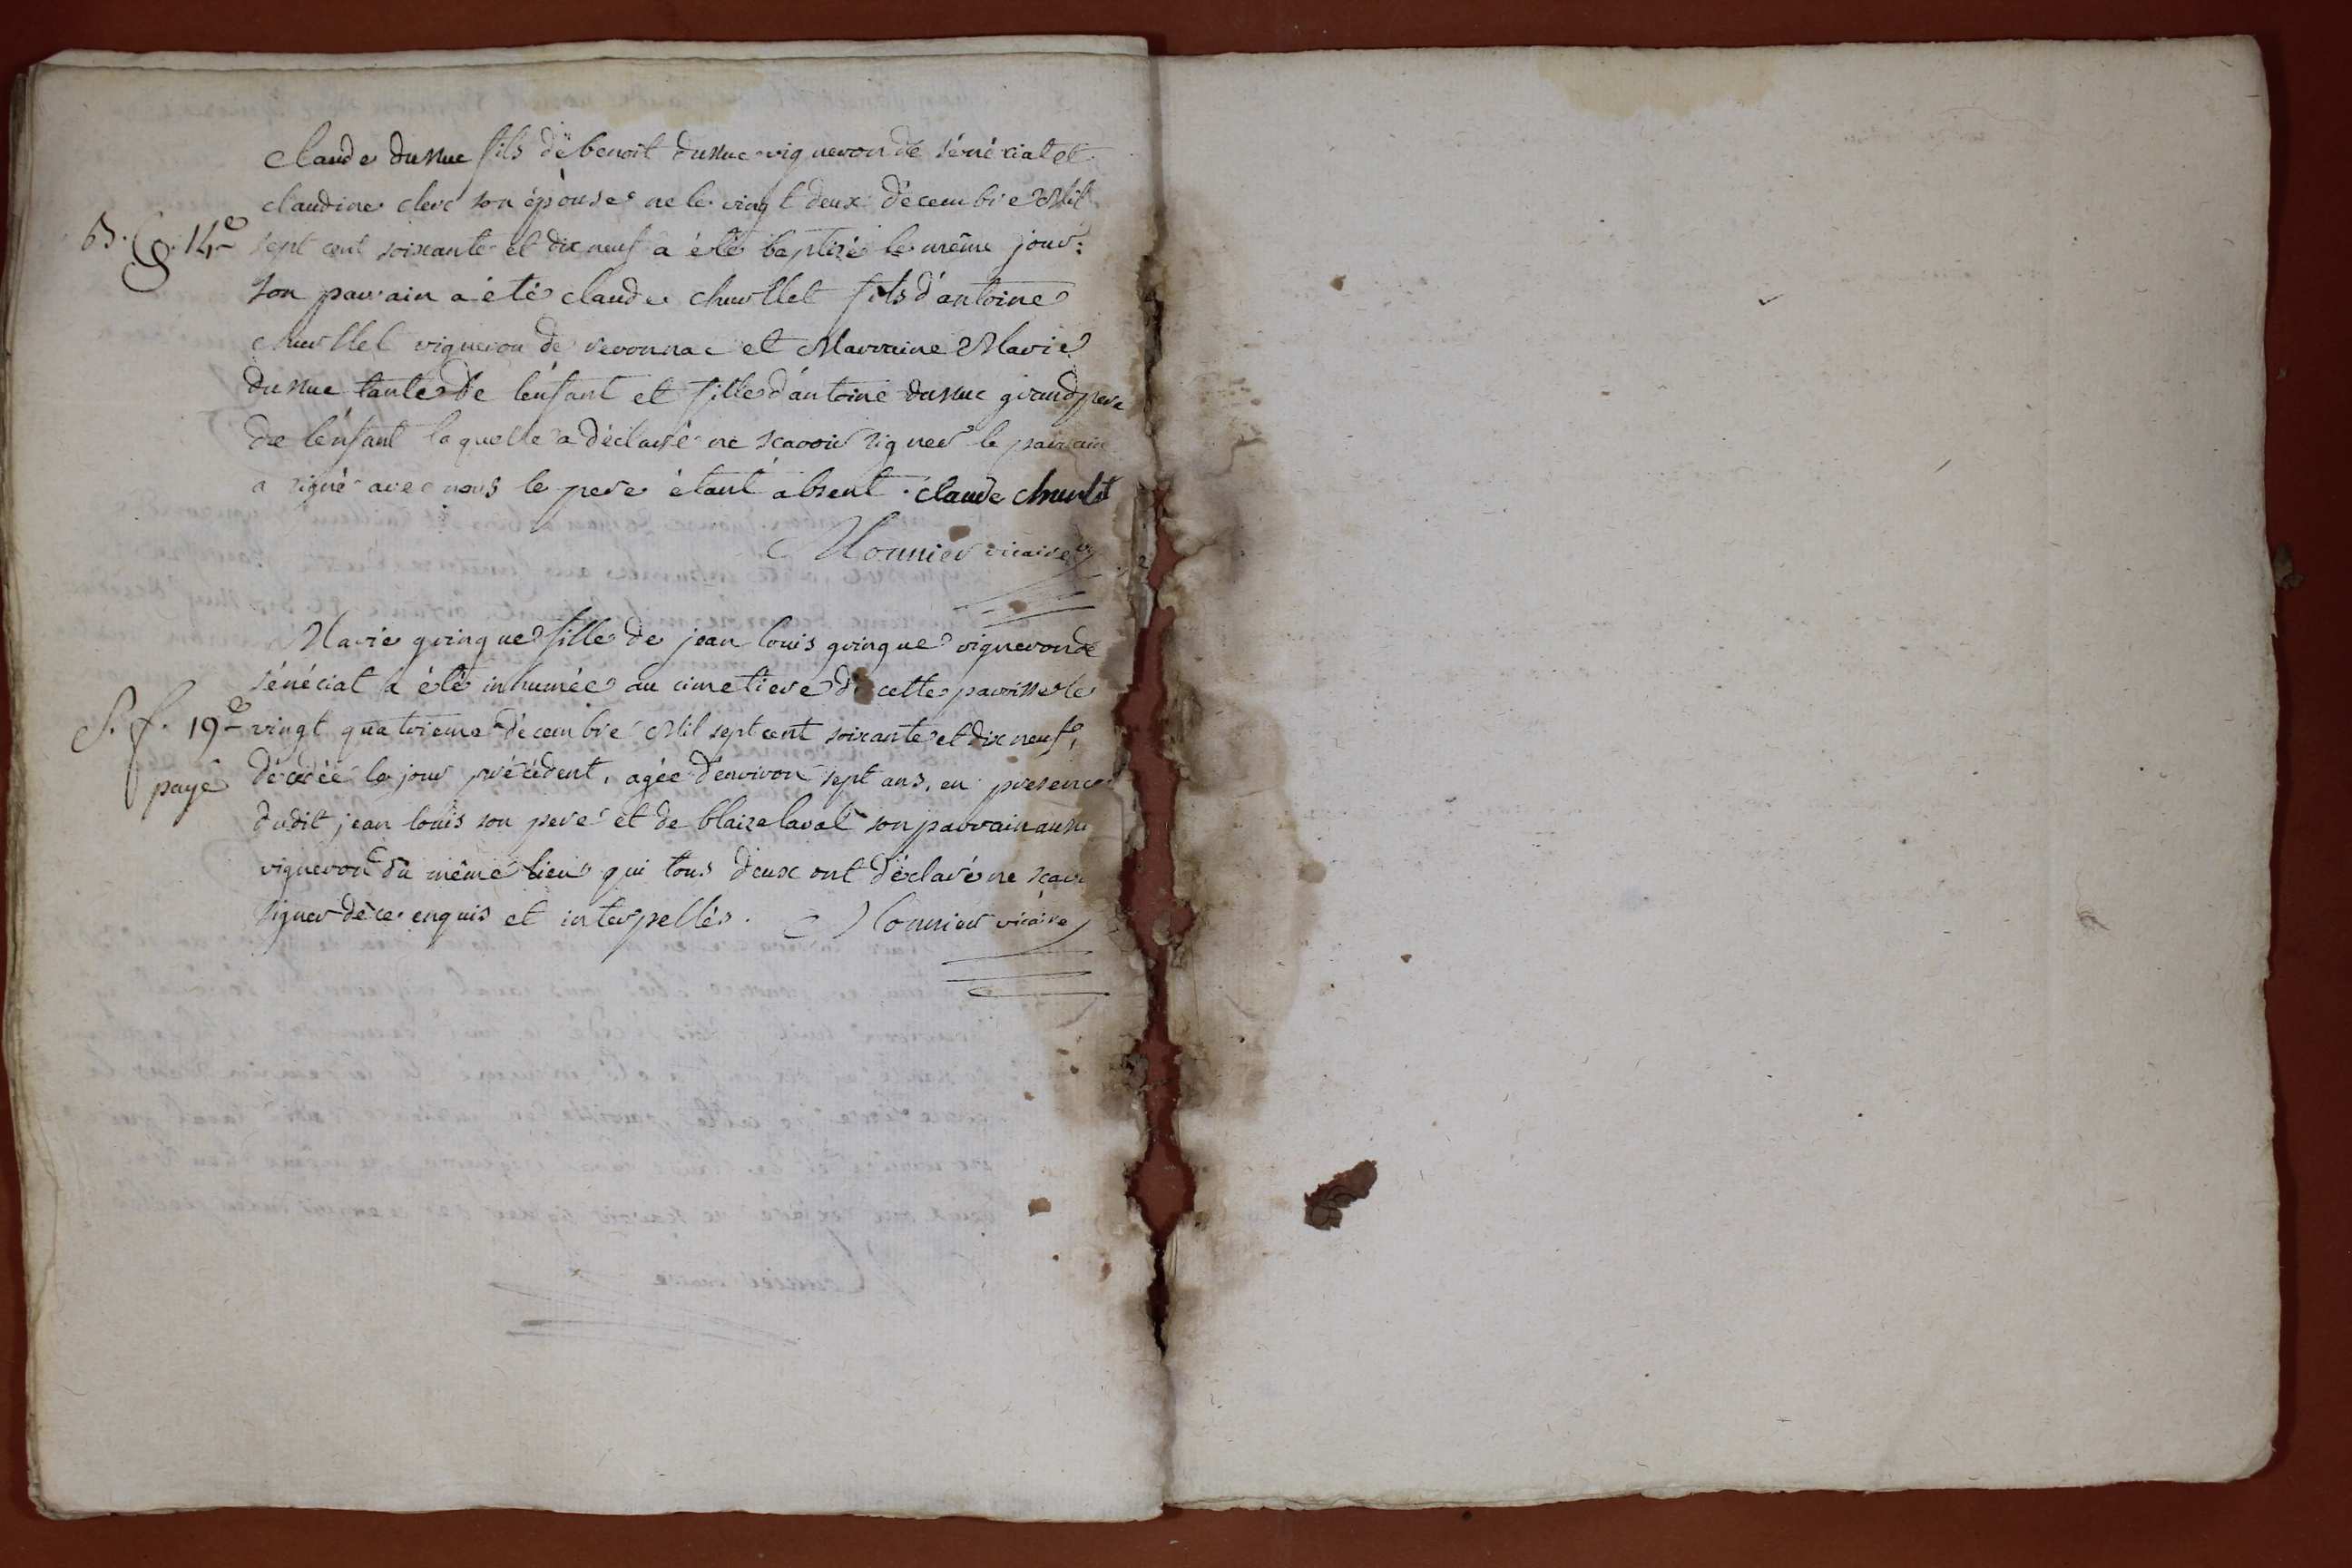 claude dunuc fils de benoit dunuc vigneron de sénéciat et
claudine clerc son épouse ne le vingt deux décembre Mil
B. G. 14e sept cent soixante et dix neuf a été baptisé le même jour:
son parrain a été claude chevllet fils d'antoine
chevllet vigneron de revonnac et Marraine Marie
dunuc tante de l'enfant et fille d'antoine dunuc grand pere
de l'enfant laquelle a déclaré ne scavoir signer le parrain
a signé avec nous le pere étant absent. claude
Monnier vicaire
Marie gringue fille de jean louis gringue vigneron de
sénéciat a été inhumée au cimetiere de cette parroisse le
S. f. 19e vingt quatrieme décembre Mil sept cent soixante et dix neuf,
payé décédée le jour précédent, agée d'environ sept ans, en presence
dudit jean louis son pere et de blaize laval son parrain aussi
vigneron du même lieu qui tous deux ont déclaré ne scav
signer de ce enquis et interpellés. Monnier vicaire